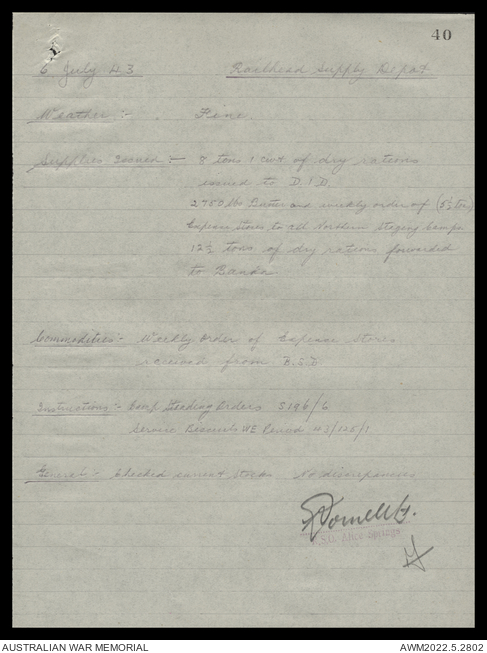 40
6 July 43 Railhead Supply Depot
Weather :- Fine.
Supplies Issued :- 8 tons 1 cwt of dry rations
issued to D.I.D.
2750 lbs Butter and weekly order of (5½ tons)
Expense stores to all Northern Staging Camps
12½ tons of dry rations forwarded
to
Commodities :- Weekly Order of Expense Stores
received from B.S.D.
Instructions :- Standing Orders S196/6
Service Biscuits 43/125/1
General :- Checked current stocks No discrepancies
Alice Springs
AUSTRALIAN WAR MEMORIAL AWM2022.5.2802